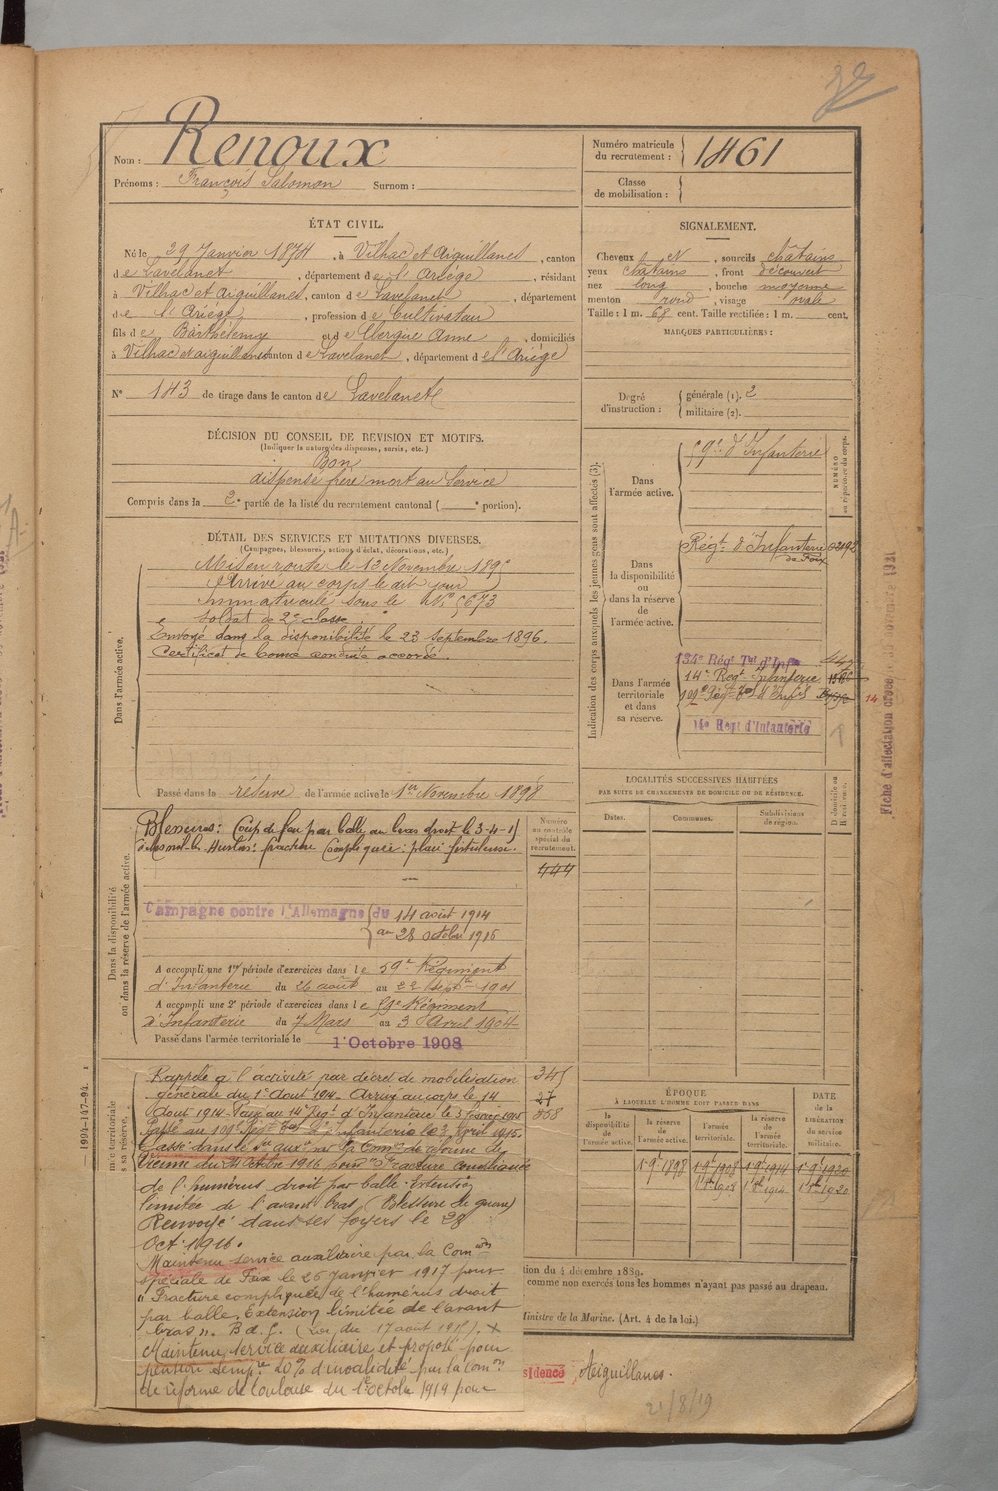 32
Nom : Renoux
Prénoms : François Salomon Surnom :
Numéro matricule du recrutement : 1461
Classe de mobilisation :
ÉTAT CIVIL.
Né le 29 Janvier 1874, à Vilhac et Aiguillanes, canton
de Lavelanet, département de l'Ariége, résidant
à Vilhac et Aiguillanes, canton de Lavelanet, département
de l'Ariége, profession de Cultivateur
fils de Barthélemy et de Clergue Anne, domiciliés
à Vilhac et aiguillanes canton de Lavelanet, département de l'Ariége
N° 143 de tirage dans le canton de Lavelanet
SIGNALEMENT.
Cheveux et, sourcils châtains
yeux châtains, front découvert
nez long, bouche moyenne
menton rond, visage ovale
Taille : 1 m. 68 cent. Taille rectifiée : 1 m. cent.
MARQUES PARTICULIÈRES :
Degré d'instruction : générale (1). 2
militaire (2).
DÉCISION DU CONSEIL DE REVISION ET MOTIFS.
(Indiquer la nature des dispenses, sursis, etc.)
Bon
dispensé frère mort au Service
Compris dans la 2e partie de la liste du recrutement cantonal ( e portion).
DÉTAIL DES SERVICES ET MUTATIONS DIVERSES.
(Campagnes, blessures, actions d'éclat, décorations, etc.)
Dans l'armée active.
Mis en route le 13 Novembre 189
Arrivé au corps le dit jour
Immatriculé sous le N° 5673
Soldat de 2e classe
Envoyé dans la disponibilité le 23 Septembre 1896.
Certificat de bonne conduite accordé.
Passé dans la réserve de l'armée active le 1er Novembre 1898
Indication des corps auxquels les jeunes gens sont affectés (3).
NUMÉRO au répertoire du corps.
Dans l'armée active.
59e d'Infanterie
Dans la disponibilité ou dans la réserve de l'armée active.
Régt d'Infanterie de Foix
Dans l'armée territoriale et dans sa réserve.
134e Régt Tal d'Infie
14e Regt Infanterie
109e Regt Tal d'Infie
14
14e Regt d'Infanterie
Fiche d'affectation créée le novembre 1921
LOCALITÉS SUCCESSIVES HABITÉES
PAR SUITE DE CHANGEMENTS DE DOMICILE OU DE RÉSIDENCE.
Dates. Communes. Subdivisions de région. D domicile ou R résidence.
Dans la disponibilité ou dans la réserve de l'armée active.
Numéro au contrôle spécial du recrutement.
444
Blessures : Coup de feu par balle au bras droit le 3-4-15
au Mesnil-les-Hurlus : fracture compliquée : plaie fistuleuse.
Campagne contre l'Allemagne du 14 août 1914
au 28 octobre 1916
A accompli une 1re période d'exercices dans le 59e Régiment
d'Infanterie du 26 août au 22 Septre 1901
A accompli une 2e période d'exercices dans le 59e Régiment
d'Infanterie du 7 Mars au 3 Avril 1904
Passé dans l'armée territoriale le 1er Octobre 1908
1994-147-94.
345
27
858
Rappelé à l'activité par décret de mobilisation
générale du 1er Août 1914. Arrivé au corps le 14
Août 1914. Passé au 14e Regt d'Infanterie le 3 février 1915
Passé au 109e Regt Tal d'Infanterie le 3 Avril 1915.
Classé dans le Sce auxre par la Comon de réforme de
Vienne du 21 Octobre 1916 pour "Fracture compliquée
de l'humérus droit par balle. Extension
limitée de l'avant bras (Blessure de guerre)
Renvoyé dans ses foyers le 28
Oct. 1916.
Maintenu service auxiliaire par la Comon
spéciale de Foix le 26 Janvier 1917 pour
"Fracture compliquée de l'humérus droit
par balle. Extension limitée de l'avant
bras". B. d. G. (Loi du 17 août 1915). x
Maintenu service auxiliaire et proposé pour
pension tempre 20% d'invalidité par la Comon
de réforme de Toulouse du 1er octobre 1919 pour
ÉPOQUE
À LAQUELLE L'HOMME DOIT PASSER DANS
la disponibilité de l'armée active. la réserve de l'armée active. l'armée territoriale. la réserve de l'armée territoriale.
DATE de la LIBÉRATION du service militaire.
1-9e 1898 1-9e 1908 1-9e 1914 1-9e 1920
1er 8bre 1908 1er 8bre 1914 1er 8bre 1920
tion du 4 décembre 1889.
comme non exercés tous les hommes n'ayant pas passé au drapeau.
Ministre de la Marine. (Art. 4 de la loi.)
sidence Aiguillanes.
21/8/19